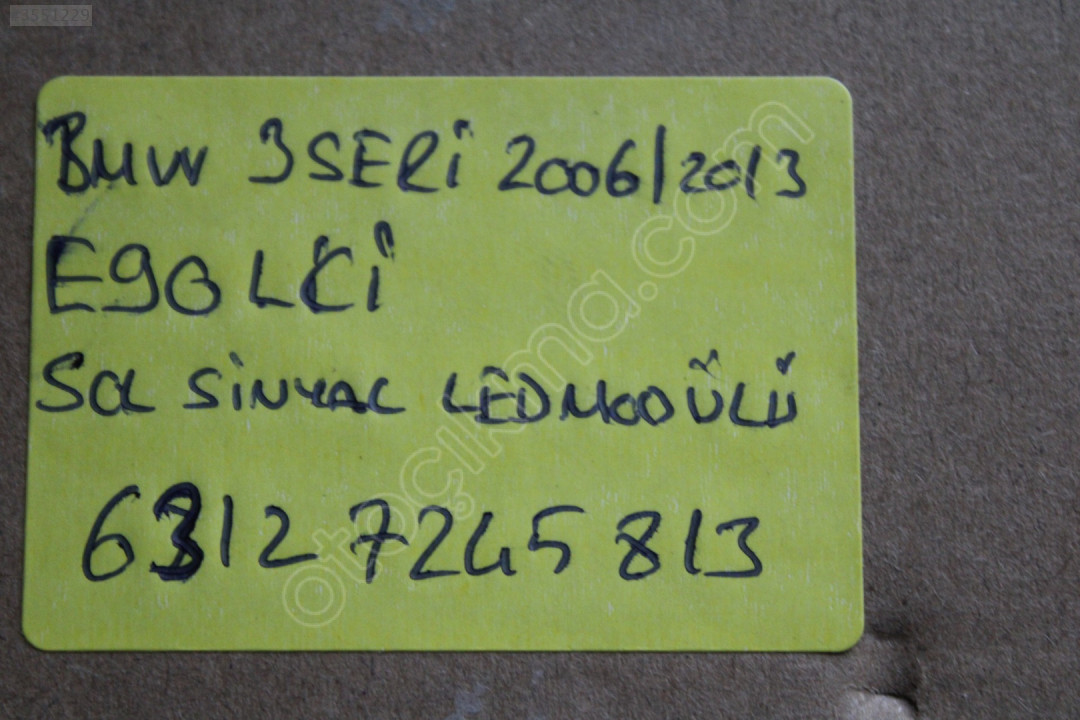 3551229
BMW 3 SERİ 2006/2013
E90 LCİ
SOL SİNYAL LED MODÜLÜ
6312 7245 813
otoçıkma.com